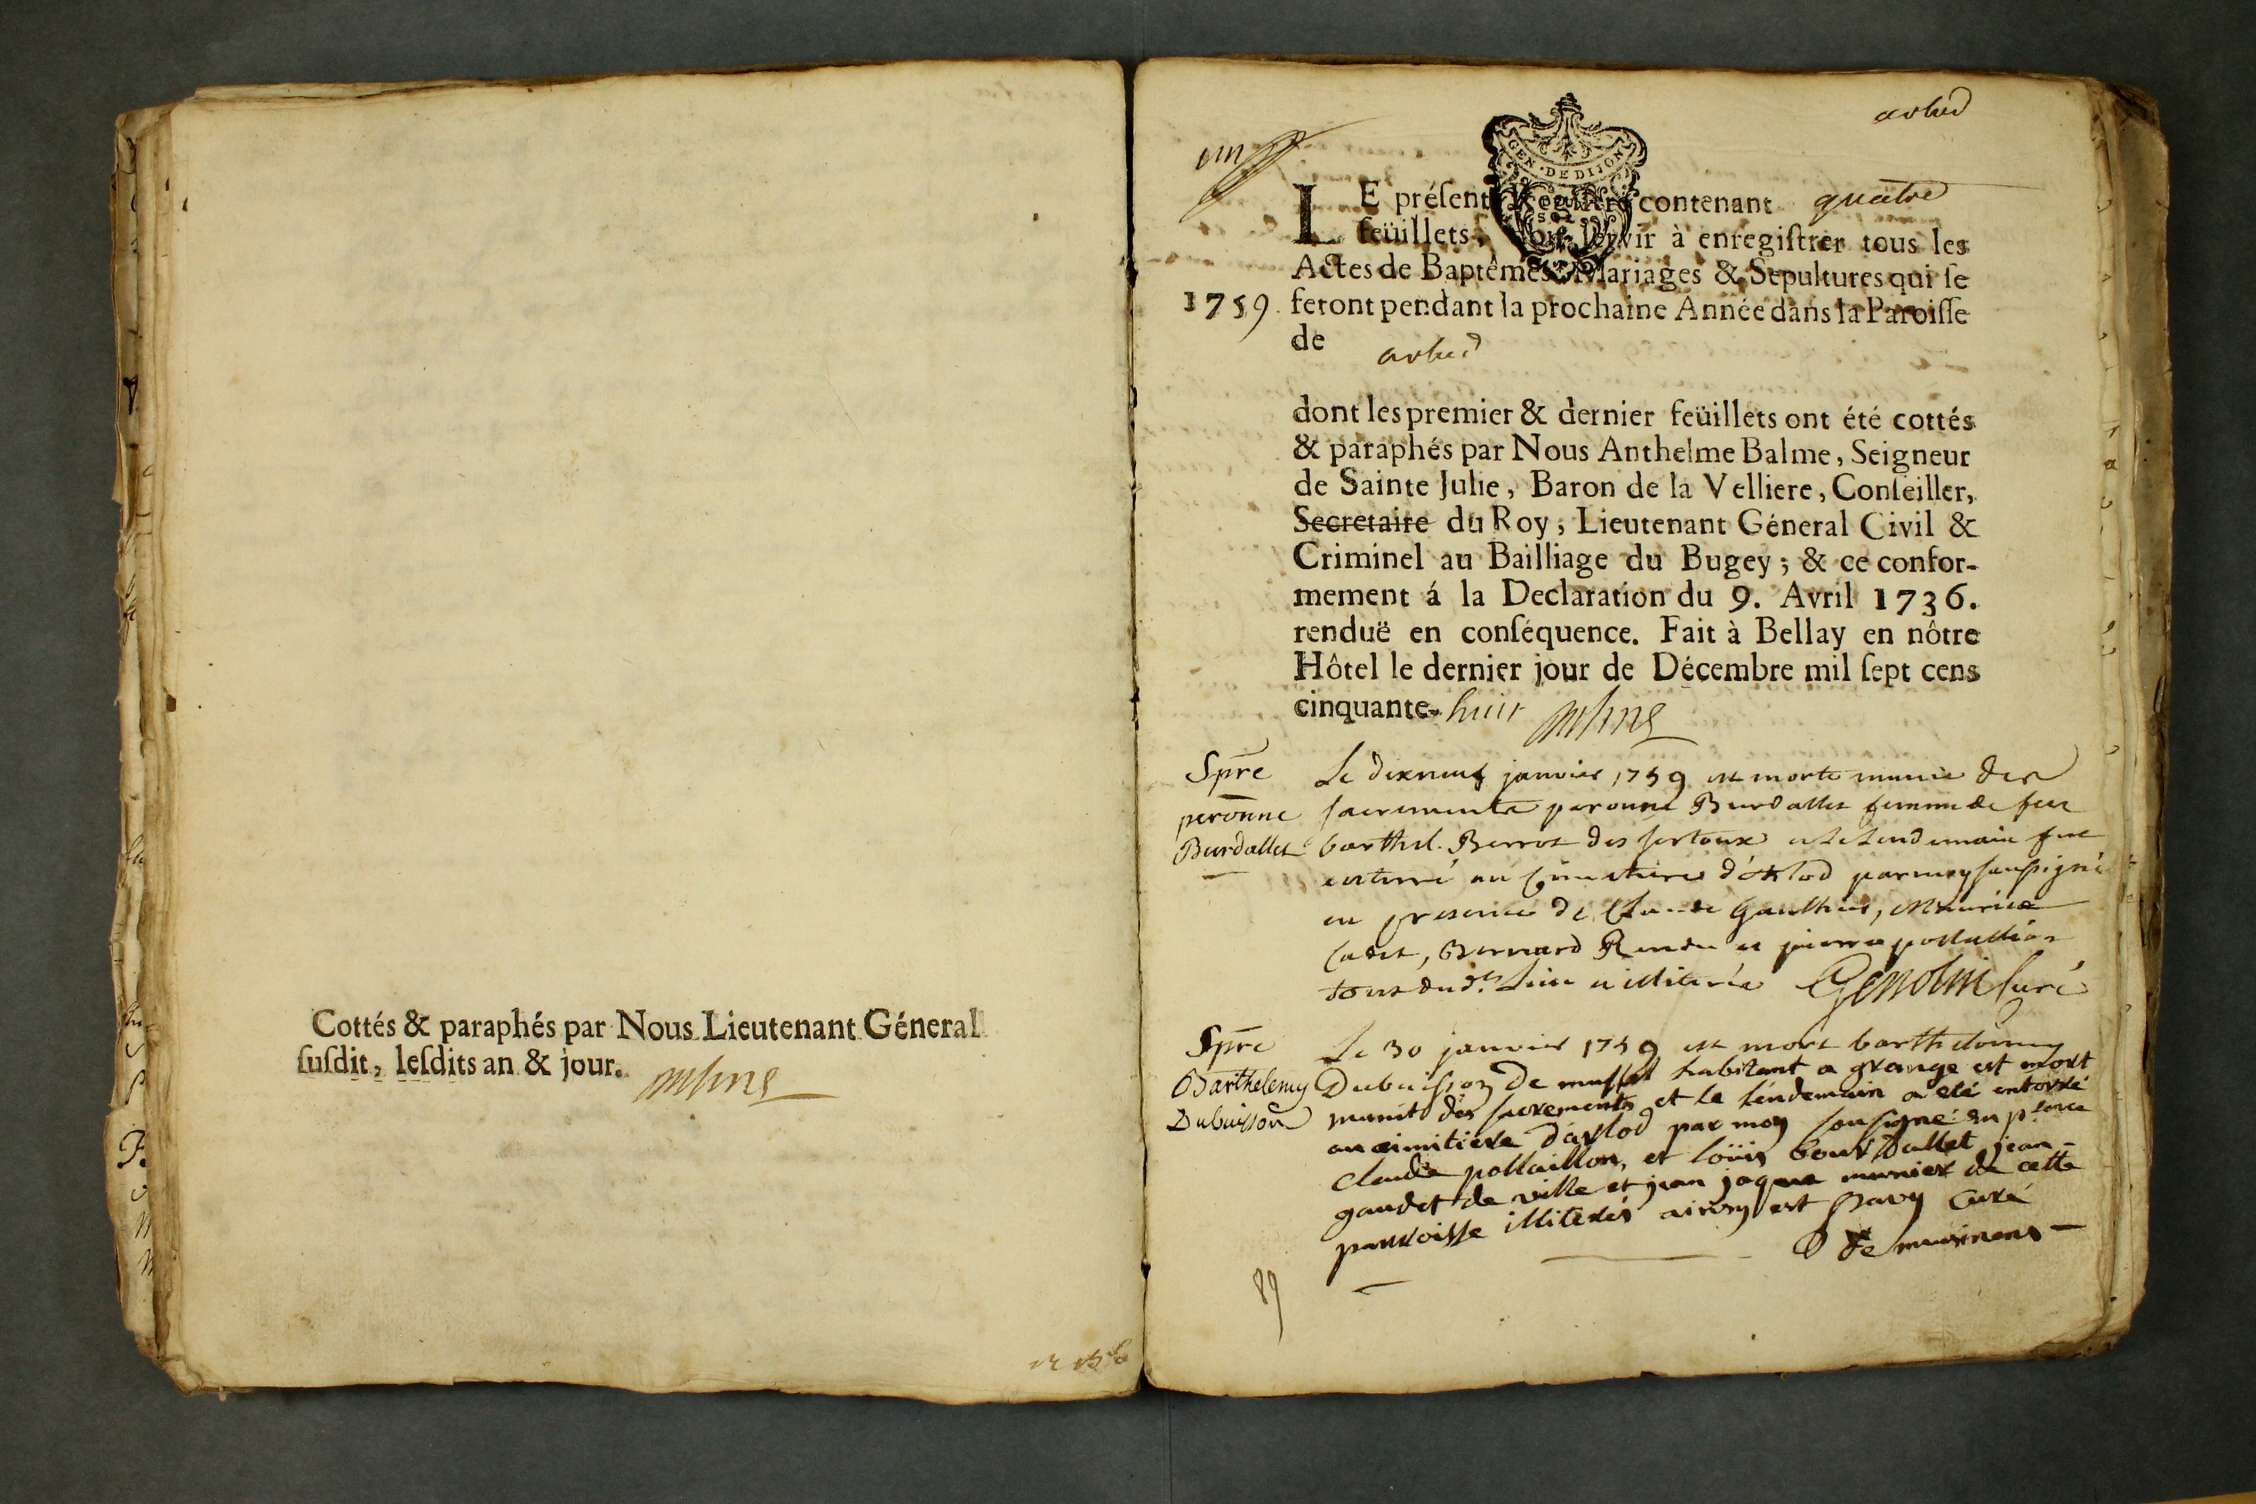 Cottés & paraphés par Nous Lieutenant Géneral
ſuſdit, leſdits an & jour.
arlod
un
GEN. DE DIJON
LE préſent Regiſtre contenant quatre
feüillets, doit ſervir à enregiſtrer tous les
Actes de Baptêmes, Mariages & Sepultures qui ſe
1759. feront pendant la prochaine Année dans la Paroiſſe
de arlod
dont les premier & dernier feüillets ont été cottés
& paraphés par Nous Anthelme Balme, Seigneur
de Sainte Julie, Baron de la Velliere, Conſeiller,
Secretaire du Roy, Lieutenant Géneral Civil &
Criminel au Bailliage du Bugey; & ce confor-
mement á la Declaration du 9. Avril 1736.
renduë en conſéquence. Fait à Bellay en nôtre
Hôtel le dernier jour de Décembre mil ſept cens
cinquante-huit
Spre
peronne
Burdallet
Le dixneuf janvier 1759 est morte munie des
sacrements peronne Burdallet femme de feu
barthel. Berrot des sertoux et le lendemain fut
enterré au Cimetiere d'arlod par moy soussigné
en presence de Claude Gauthier, Maurice
Cadet, Bernard Rendu et pierre pollaillion
tous dud. lieu illiterés Genolin Curé
Spre
Barthelemy
Dubuisson
Le 30 janvier 1759 est mort barthelemy
Dubuisson de mussel habitant a grange est mort
munit des sacrements et le lendemain a eté enterré
au cimitiere d'arlod par moy sousigné en p.sence
claude pollaillon, et loüis bourdallet jean-
gaudet de ville et jean jaque munier de cette
parroisse illiterés ainsy est Savy curé
de musinens